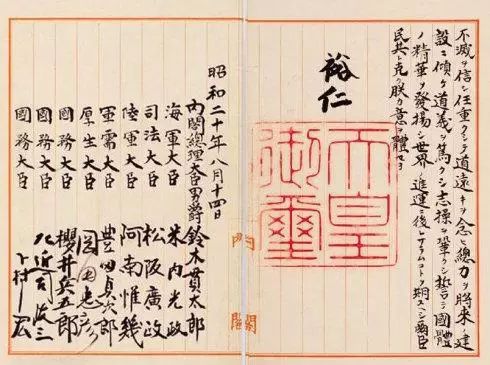 不滅ヲ信シ任重クシテ道遠キヲ念ヒ總力ヲ將來ノ建
設ニ傾ケ道義ヲ篤クシ志操ヲ鞏クシ誓テ國體
ノ精華ヲ發揚シ世界ノ進運ニ後レサラムコトヲ期スヘシ爾臣
民其レ克ク朕カ意ヲ體セヨ
裕仁
天皇
御璽
昭和二十年八月十四日
內閣總理大臣男爵鈴木貫太郎
海軍大臣 米內光政
司法大臣 松阪廣政
陸軍大臣 阿南惟幾
軍需大臣 豊田貞次郎
厚生大臣 岡田忠彥
國務大臣 櫻井兵五郎
國務大臣 左近司政三
國務大臣 下村宏
內閣